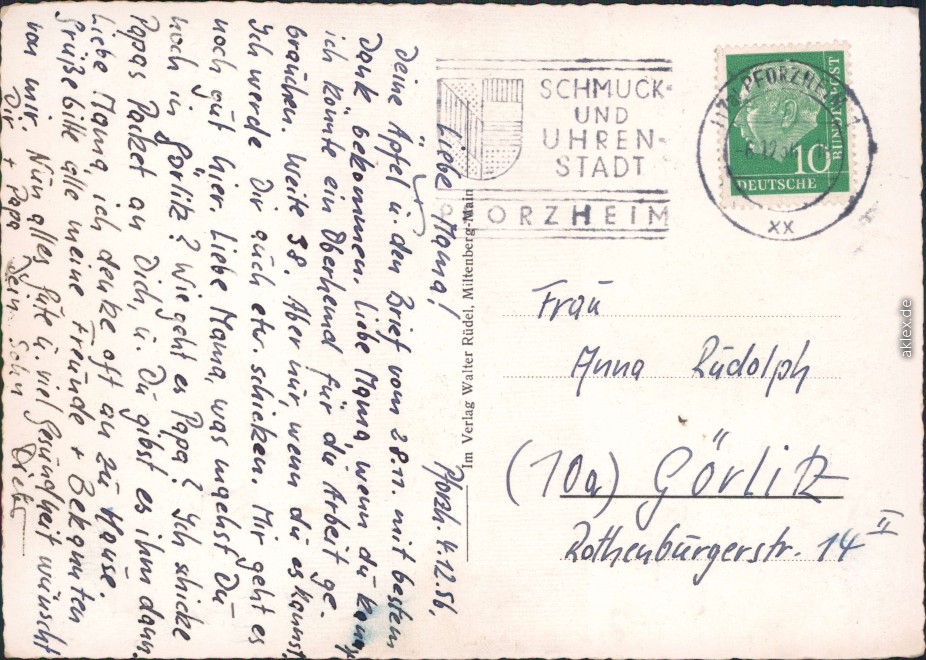 Pforzh. 4.12.56,
Liebe Mama!
Deine Äpfel u. den Brief vom 28.11. mit bestem
Dank bekommen. Liebe Mama, wenn du kannst
ich könnte ein Oberhemd für die Arbeit ge-
brauchen. Weite 38. Aber nur, wenn du es kannst
Ich werde Dir auch etw. schicken. Mir geht es
noch gut hier. Liebe Mama, was machst Du
noch in Görlitz? Wie geht es Papa? Ich schicke
Papas Packet an Dich, u. Du gibst es ihm dann.
Liebe Mama, ich denke oft an zu Hause.
Grüße bitte alle meine Freunde + Bekannten
von mir. Nun alles Gute u. viel Gesundheit wünscht
Dir + Papa Dein Sohn Dieter
Im Verlag Walter Rüdel, Miltenberg-Main
SCHMUCK-
UND
UHREN-
STADT
PFORZHEIM
PFORZHEIM 1
xx
10
DEUTSCHE
BUNDESPOST
Frau
Anna Rudolph
(10a) Görlitz
Rothenburgerstr. 14 II
aklex.de